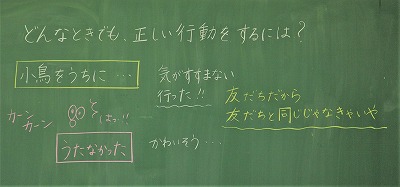 どんなときでも、正しい行動をするには？
小鳥をうちに…
気がすすまない
行った!!
友だちだから
友だちと同じじゃなきゃいや
カーン
カーン
はっ!!
うたなかった
かわいそう…